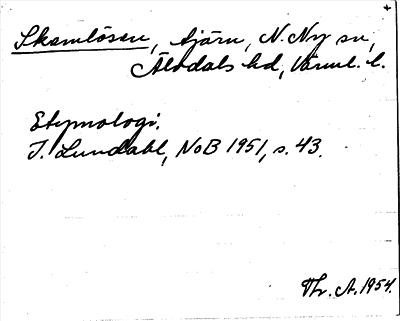 Skamlösen, tjärn, N. Ny sn,
Älvdals hd, Värml. l.
Etymologi.
I. Lundahl, NoB 1951, s. 43.
Thr. A. 1954.